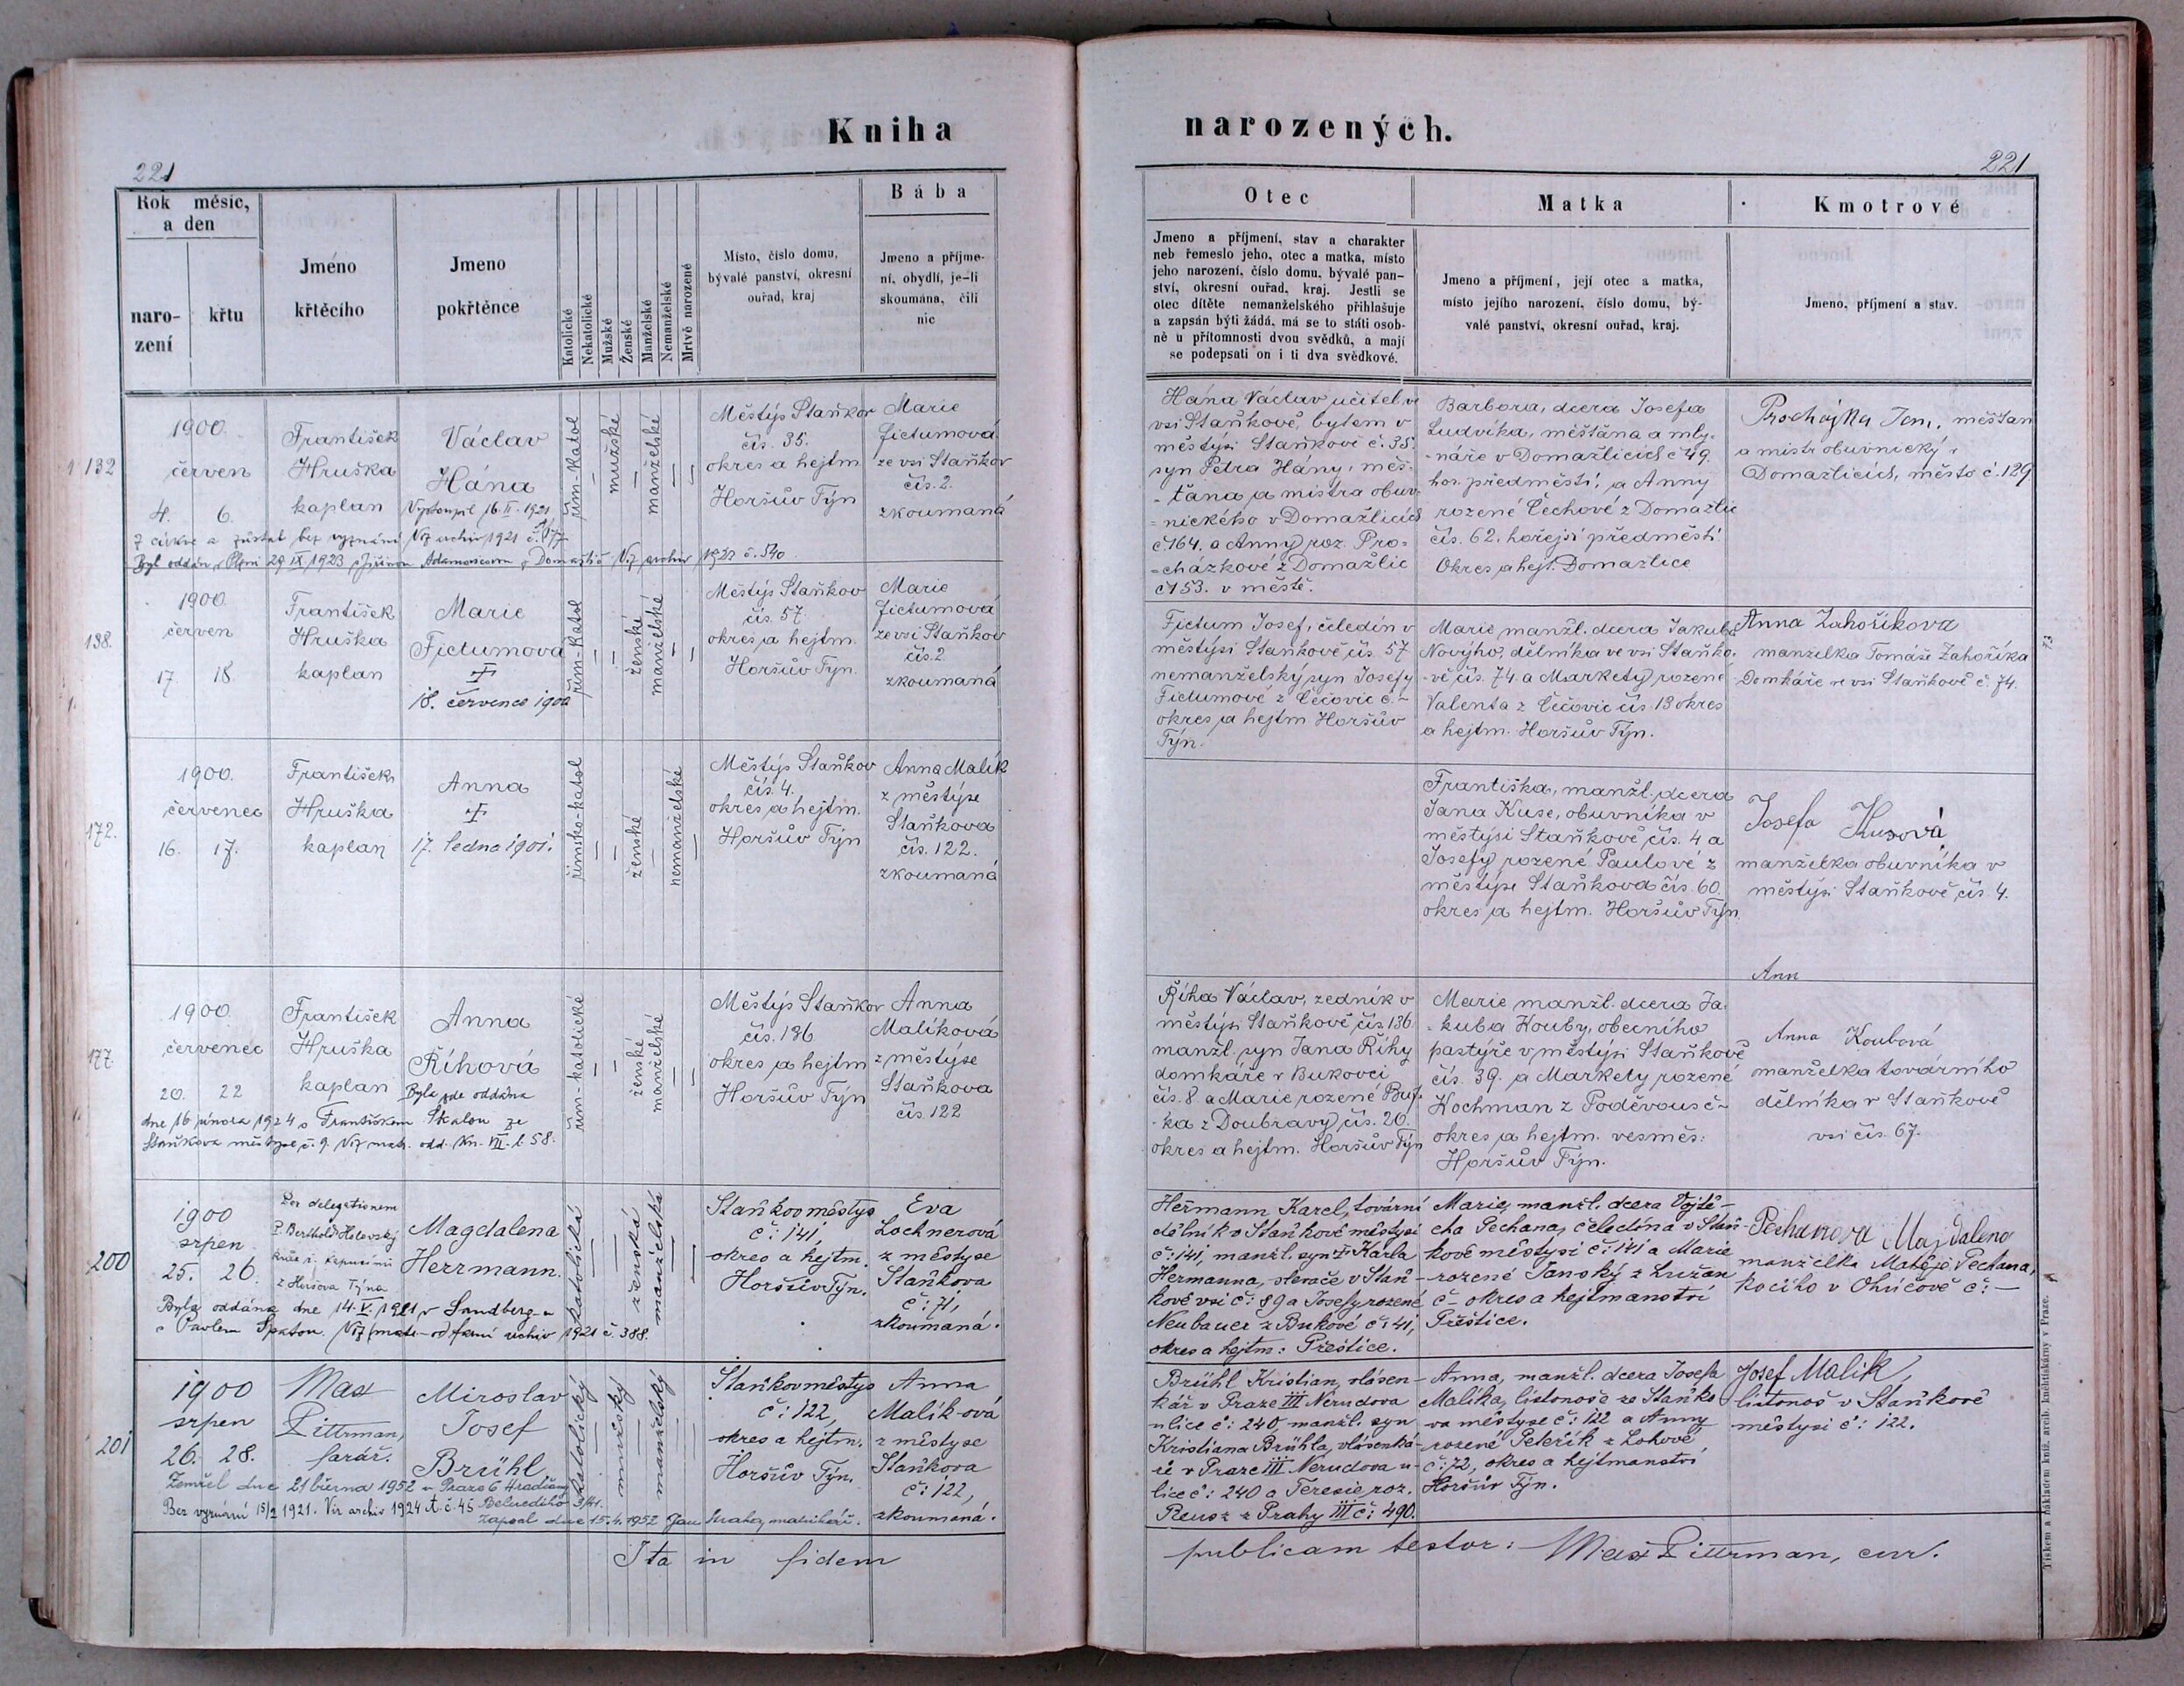 Kniha
narozených.
221
221
Rok měsíc,
a den
naro-
zení
křtu
Jméno
křtěcího
Jmeno
pokřtěnce
Katolické
Nekatolické
Mužské
Ženské
Manželské
Nemanželské
Mrtvě narozené
Místo, číslo domu,
bývalé panství, okresní
ouřad, kraj
Bába
Jmeno a příjme-
ní, obydlí, je-li
skoumána, čili
nic
Otec
Jmeno a příjmení, stav a charakter
neb řemeslo jeho, otec a matka, místo
jeho narození, číslo domu, bývalé pan-
ství, okresní ouřad, kraj. Jestli se
otec dítěte nemanželského přihlašuje
a zapsán býti žádá, má se to státi osob-
ně u přítomnosti dvou svědků, a mají
se podepsati on i ti dva svědkové.
Matka
Jmeno a příjmení, její otec a matka,
místo jejího narození, číslo domu, bý-
valé panství, okresní ouřad, kraj.
Kmotrové
Jmeno, příjmení a stav.
132
1900.
červen
4. 6.
František
Hruška
kaplan
Václav
Hána
Vystoupil 16. II. 1921
z církve a zůstal bez vyznání Viz archiv 1921 č. 177
Byl oddán v Plzni 29 IX 1923 s Jiřinou Adamcovou z Domažlic Viz archiv 1923 č. 540
řím-katol
mužské
manželské
Městýs Staňkov
čís. 35.
okres a hejtm.
Horšův Týn
Marie
Fictumová
ze vsi Staňkov
čís. 2.
zkoumaná
Hána Václav učitel ve
vsi Staňkově, bytem v
městysi Staňkově č. 35.
syn Petra Hány, měš-
-ťana a mistra obuv-
=nického v Domažlicích
č. 164. a Anny roz. Pro=
=cházkové z Domažlic
č 153. v městě.
Barbora, dcera Josefa
Ludvíka, měšťana a mly-
-náře v Domažlicích č 49.
hor. předměstí, a Anny
rozené Čechové z Domažlic
čís. 62. hořejší předměstí
Okres a hejt. Domažlice
Procházka Jan, měšťan
a mistr obuvnický v
Domažlicích, město č. 129
138.
1900
červen
17. 18.
František
Hruška
kaplan
Marie
Fictumová
†
18. července 1900
řím-katol
ženské
manželské
Městýs Staňkov
čís. 57
okres a hejtm.
Horšův Týn.
Marie
Fictumová
ze vsi Staňkov
čís. 2.
zkoumaná
Fictum Josef, čeledín v
městysi Staňkově čís. 57
nemanželský syn Josefy
Fictumové z Čečovic č. -
okres a hejtm Horšův
Týn.
Marie manžl. dcera Jakuba
Nového, dělníka ve vsi Staňko-
-vě čís. 74. a Markety rozené
Valenta z Čečovic čís. 13 okres
a hejtm. Horšův Týn.
Anna Zahoříkova
manželka Tomáše Zahoříka
Domkáře ve vsi Staňkově č. 74.
172.
1900.
červenec
16. 17.
František
Hruška
kaplan
Anna
†
17. ledna 1901.
římsko-katol
ženské
nemanželské
Městýs Staňkov
čís. 4.
okres a hejtm.
Horšův Týn
Anna Malík
z městýse
Staňkova
čís. 122.
zkoumaná
Františka, manžl. dcera
Jana Kuse, obuvníka v
městýsi Staňkově čís. 4 a
Josefy rozené Paulové z
městýse Staňkova čís. 60.
okres a hejtm. Horšův Týn
Josefa Kusová
manželka obuvníka v
městýsi Staňkově čís. 4.
177.
1900.
červenec
20. 22
František
Hruška
kaplan
Anna
Říhová
Byla zde oddána
dne 16 února 1924 s Františkem Skalou ze
Staňkova městyse č. 9. Viz matr. odd. Kn. VII. l. 58.
řím-katolické
ženské
manželské
Městýs Staňkov
čís. 136
okres a hejtm
Horšův Týn
Anna
Malíková
z městýse
Staňkova
čís 122
Říha Václav, zedník v
městýsi Staňkově čís. 136
manžl. syn Jana Říhy
domkáře v Bukovci
čís. 8 a Marie rozené Buf-
-ka z Doubravy čís. 20.
okres a hejtm. Horšův Týn
Marie manžl. dcera Ja-
-kuba Kouby, obecního
pastýře v městýsi Staňkově
čís. 39. a Markety rozené
Kochman z Poděvous č-
okres a hejtm. vesměs:
Horšův Týn.
Ann
Anna Koubová
manželka továrního
dělníka v Staňkově
vsi čís. 67.
200
1900
srpen
25. 26.
Per delegationem
P. Berthold Holovský
kněz ř. kapucínů
z Horšova Týna
Magdalena
Herrmann.
Byla oddána dne 14. V. 1921 v Sandberg-u
s Pavlem Spatou. Viz archiv 1921 č. 388.
katolická
ženská
manželská
Staňkov městys
č: 141,
okres a hejtm.
Horšův Týn.
Eva
Lochnerová
z městyse
Staňkova
č: 71,
zkoumaná.
Heřmann Karel, tovární
dělník v Staňkově městysi
č: 141, manžl. syn † Karla
Heřmanna, tkalce v Staň-
kově vsi č: 89 a Josefy rozené
Neubauer z Bukové č: 41,
okres a hejtm: Přeštice.
Marie, manžl. dcera Vojtě-
cha Pechana, čeledína v Staň-
kově městysi č: 141 a Marie
rozené Janský z Lužan
č- okres a hejtmanství
Přeštice.
Pechanova Majdalena
manželka Matěje Pechana,
kočího v Ohučově č: —
201
1900
srpen
26. 28.
Max
Pittrman,
farář.
Miroslav
Josef
Brühl
Zemřel dne 21 března 1952 v Praze 6 Hradčany
Belcrediho 3/41.
Bez vyznání 15/2 1921. Viz archiv 1924 A. č 45
Zapsal dne 15. 4. 1952 Jan matrikář.
katolický
mužský
manželský
Staňkov městys
č: 122,
okres a hejtm.
Horšův Týn.
Anna
Malík-ová
z městyse
Staňkova
č: 122,
zkoumaná.
Brühl Kristian, vlásen-
kář v Praze III Nerudova
ulice č: 240, manžl. syn
Kristiana Brühla, vlásenká-
ře v Praze III Nerudova u-
lice č: 240 a Teresie roz.
Reusz z Prahy III č: 490.
Anna, manžl. dcera Josefa
Malíka, listonoše ze Staňko
va městyse č: 122 a Anny
rozené Peteřík z Lohové
č: 72, okres a hejtmanství
Horšův Týn.
Josef Malík,
listonoš v Staňkově
městysi č: 122.
Ita in fidem
publicam testor: Max Pittrman, cur.
73
Tiskem a nákladem kníž. arcib. kněhtiskárny v Praze.